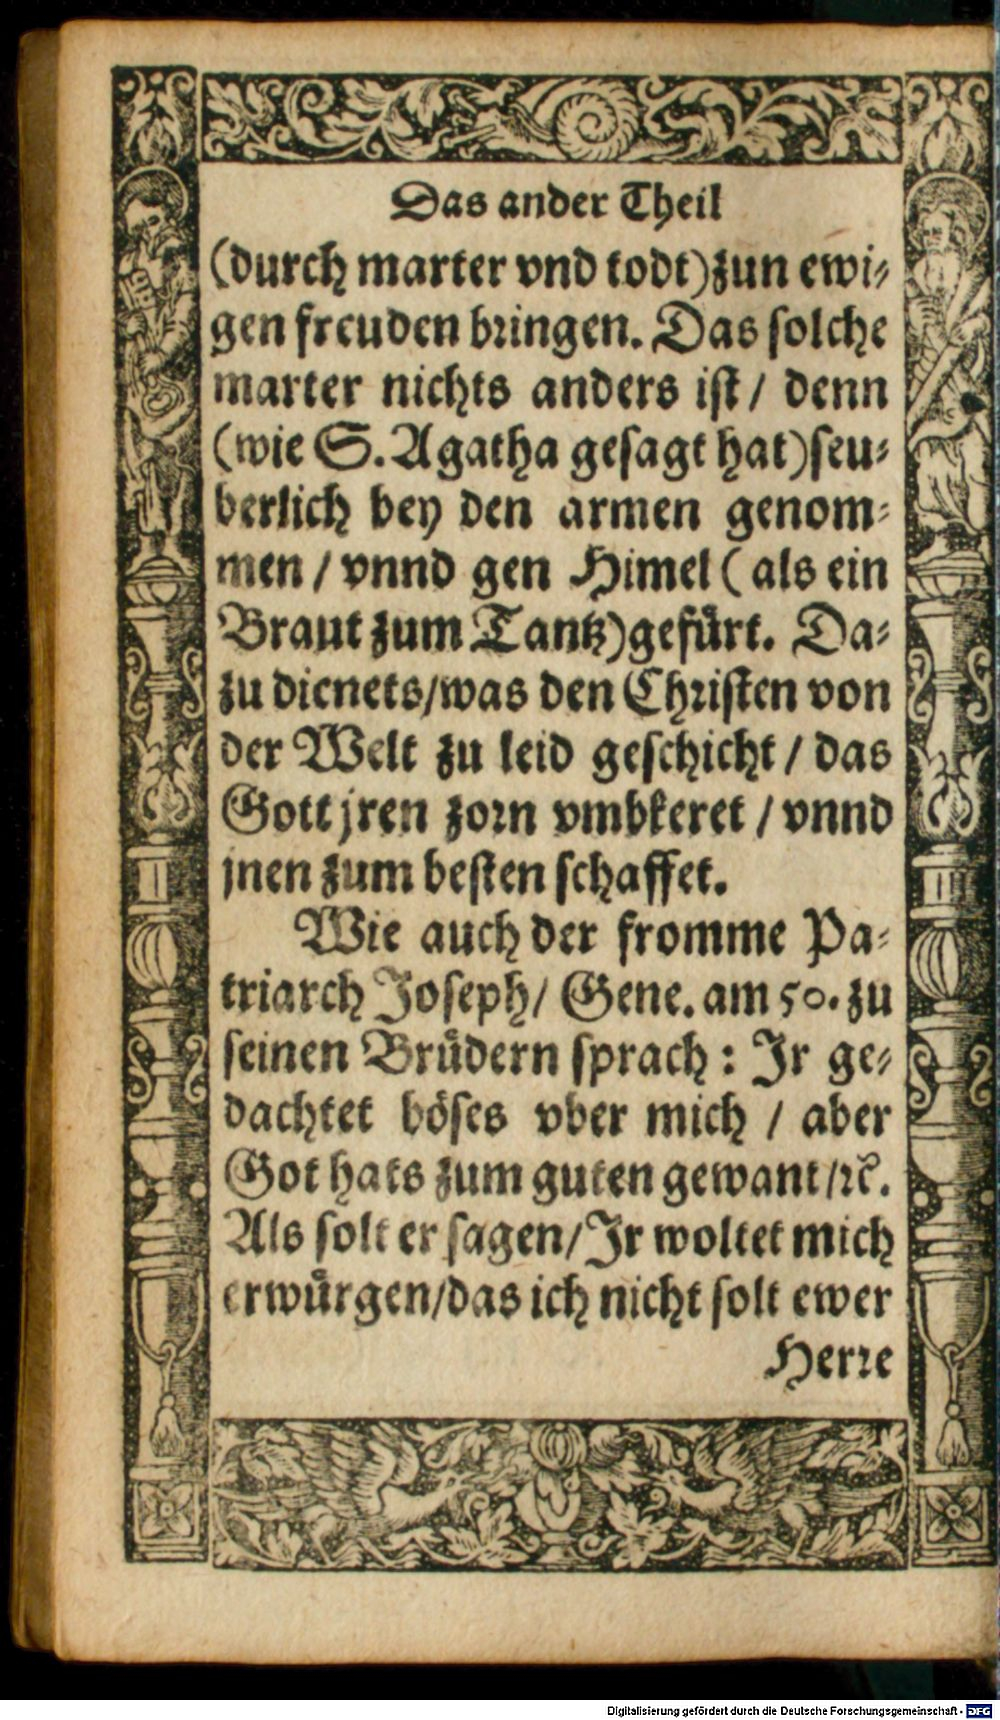 Das ander Theil
(durch marter vnd todt)zun ewi-
gen freuden bringen. Das solche
marter nichts anders ist/ denn
(wie S. Agatha gesagt hat)seu-
berlich bey den armen genom-
men / vnnd gen Himel ( als ein
Braut zum Tantz)gefürt. Da-
zu dienets/was den Christen von
der Welt zu leid geschicht / das
Gott jren zorn vmbkeret / vnnd
jnen zum besten schaffet.
Wie auch der fromme Pa-
triarch Joseph/ Gene. am 50. zu
seinen Brüdern sprach : Jr ge-
dachtet böses vber mich / aber
Got hats zum guten gewant/ꝛc̃.
Als solt er sagen/Jr woltet mich
erwürgen/das ich nicht solt ewer
Herre
Digitalisierung gefördert durch die Deutsche Forschungsgemeinschaft - DFG